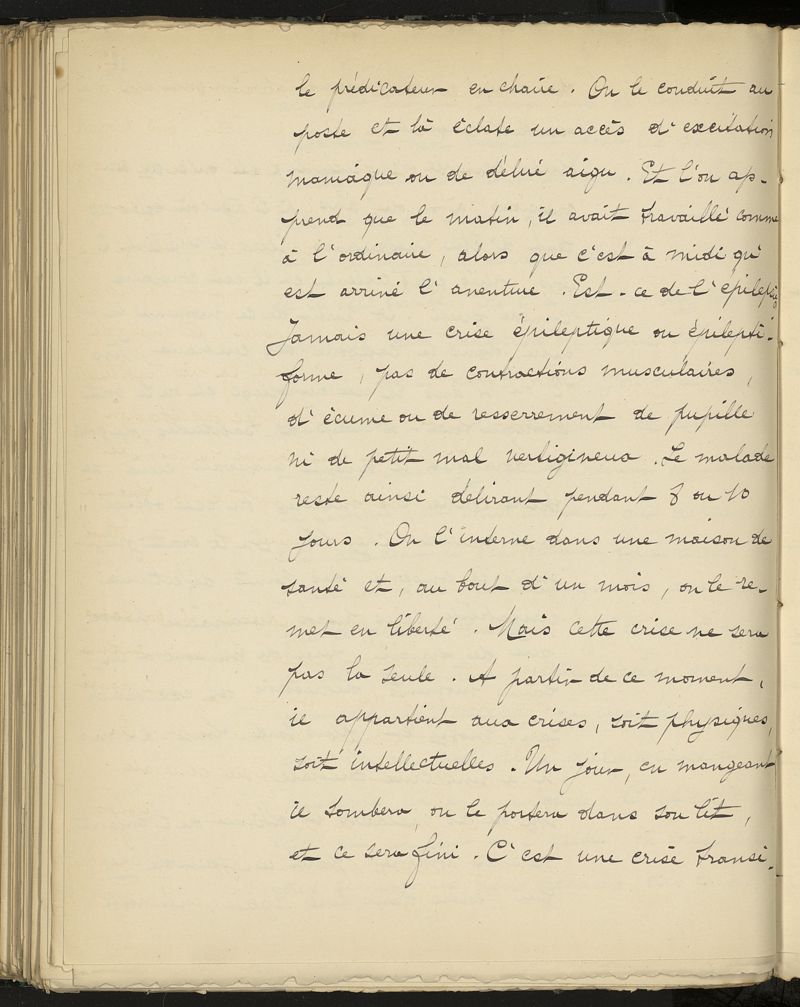 le prédicateur en chaire. On le conduit au
poste et là éclate un accès d'excitation
maniaque ou de délire aigu. Et l'on ap-
prend que le matin, il avait travaillé comme
à l'ordinaire, alors que c'est à midi qu'
est arrivé l'aventure. Est-ce de l'épilepsie
Jamais une crise épileptique ou épilepti-
forme, pas de contractions musculaires,
d'écume ou de resserrement de pupille
ni de petit mal vertigineux. Le malade
reste ainsi délirant pendant 8 ou 10
jours. On l'interne dans une maison de
santé et, au bout d'un mois, on le re-
met en liberté. Mais cette crise ne sera
pas la seule. A partir de ce moment,
il appartient aux crises, soit physiques,
soit intellectuelles. Un jour, en mangeant
il tombera, on le portera dans son lit,
et ce sera fini. C'est une crise transi-